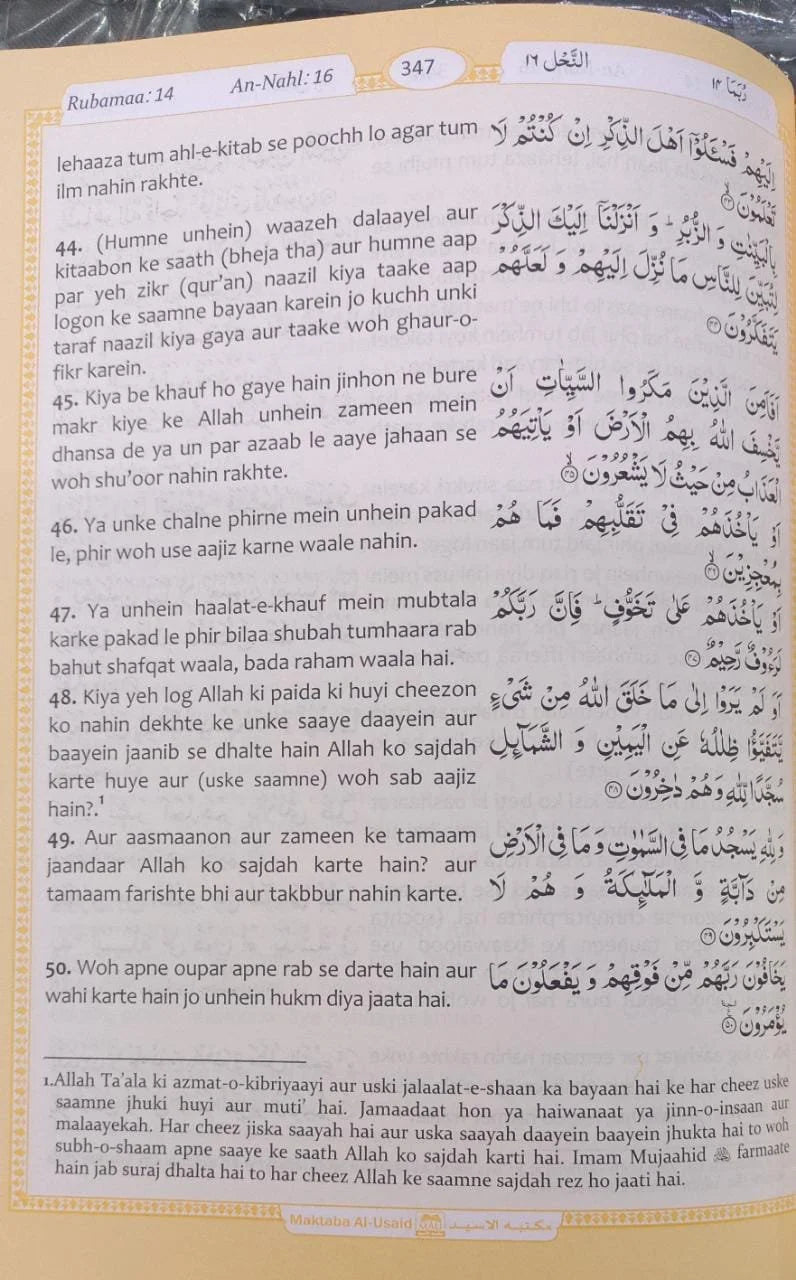 Rubamaa: 14
An-Nahl: 16
347
النَّحْل ١٦
رُبَمَا ١٤
lehaaza tum ahl-e-kitab se poochh lo agar tum
ilm nahin rakhte.
اِلَيْهِمْ فَسْـَٔلُوْٓا اَهْلَ الذِّكْرِ اِنْ كُنْتُمْ لَا
تَعْلَمُوْنَ ۙ﴿۴۳﴾
44. (Humne unhein) waazeh dalaayel aur
kitaabon ke saath (bheja tha) aur humne aap
par yeh zikr (qur’an) naazil kiya taake aap
logon ke saamne bayaan karein jo kuchh unki
taraf naazil kiya gaya aur taake woh ghaur-o-
fikr karein.
بِالْبَيِّنٰتِ وَ الزُّبُرِ ؕ وَ اَنْزَلْنَاۤ اِلَيْكَ الذِّكْرَ
لِتُبَيِّنَ لِلنَّاسِ مَا نُزِّلَ اِلَيْهِمْ وَ لَعَلَّهُمْ
يَتَفَكَّرُوْنَ ﴿۴۴﴾
45. Kiya be khauf ho gaye hain jinhon ne bure
makr kiye ke Allah unhein zameen mein
dhansa de ya un par azaab le aaye jahaan se
woh shu’oor nahin rakhte.
اَفَاَمِنَ الَّذِيْنَ مَكَرُوا السَّيِّاٰتِ اَنْ
يَّخْسِفَ اللّٰهُ بِهِمُ الْاَرْضَ اَوْ يَاْتِيَهُمُ
الْعَذَابُ مِنْ حَيْثُ لَا يَشْعُرُوْنَ ۙ﴿۴۵﴾
46. Ya unke chalne phirne mein unhein pakad
le, phir woh use aajiz karne waale nahin.
اَوْ يَاْخُذَهُمْ فِيْ تَقَلُّبِهِمْ فَمَا هُمْ
بِمُعْجِزِيْنَ ۙ﴿۴۶﴾
47. Ya unhein haalat-e-khauf mein mubtala
karke pakad le phir bilaa shubah tumhaara rab
bahut shafqat waala, bada raham waala hai.
اَوْ يَاْخُذَهُمْ عَلٰى تَخَوُّفٍ ؕ فَاِنَّ رَبَّكُمْ
لَرَءُوْفٌ رَّحِيْمٌ ﴿۴۷﴾
48. Kiya yeh log Allah ki paida ki huyi cheezon
ko nahin dekhte ke unke saaye daayein aur
baayein jaanib se dhalte hain Allah ko sajdah
karte huye aur (uske saamne) woh sab aajiz
hain?.¹
اَوَ لَمْ يَرَوْا اِلٰى مَا خَلَقَ اللّٰهُ مِنْ شَيْءٍ
يَّتَفَيَّؤُا ظِلٰلُهٗ عَنِ الْيَمِيْنِ وَ الشَّمَآئِلِ
سُجَّدًا لِّلّٰهِ وَ هُمْ دٰخِرُوْنَ ﴿۴۸﴾
49. Aur aasmaanon aur zameen ke tamaam
jaandaar Allah ko sajdah karte hain? aur
tamaam farishte bhi aur takbbur nahin karte.
وَ لِلّٰهِ يَسْجُدُ مَا فِي السَّمٰوٰتِ وَ مَا فِي الْاَرْضِ
مِنْ دَآبَّةٍ وَّ الْمَلٰٓئِكَةُ وَ هُمْ لَا
يَسْتَكْبِرُوْنَ ﴿۴۹﴾
50. Woh apne oupar apne rab se darte hain aur
wahi karte hain jo unhein hukm diya jaata hai.
يَخَافُوْنَ رَبَّهُمْ مِّنْ فَوْقِهِمْ وَ يَفْعَلُوْنَ مَا
يُؤْمَرُوْنَ ﴿۵۰﴾
1.Allah Ta’ala ki azmat-o-kibriyaayi aur uski jalaalat-e-shaan ka bayaan hai ke har cheez uske
saamne jhuki huyi aur muti’ hai. Jamaadaat hon ya haiwanaat ya jinn-o-insaan aur
malaayekah. Har cheez jiska saayah hai aur uska saayah daayein baayein jhukta hai to woh
subh-o-shaam apne saaye ke saath Allah ko sajdah karti hai. Imam Mujaahid farmaate
hain jab suraj dhalta hai to har cheez Allah ke saamne sajdah rez ho jaati hai.
Maktaba Al-Usaid
مكتبه الاسيد